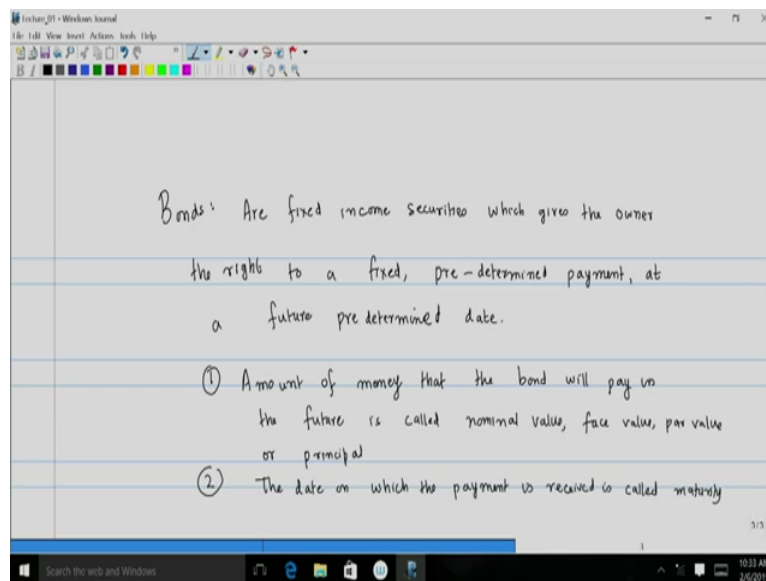 Lecture_01 - Windows Journal
File Edit View Insert Actions Tools Help
B I
Bonds: Are fixed income securities which gives the owner
the right to a fixed, pre-determined payment, at
a future predetermined date.
① Amount of money that the bond will pay in
the future is called nominal value, face value, par value
or principal
② The date on which the payment is received is called maturity
3/3
1
Search the web and Windows
10:33 AM